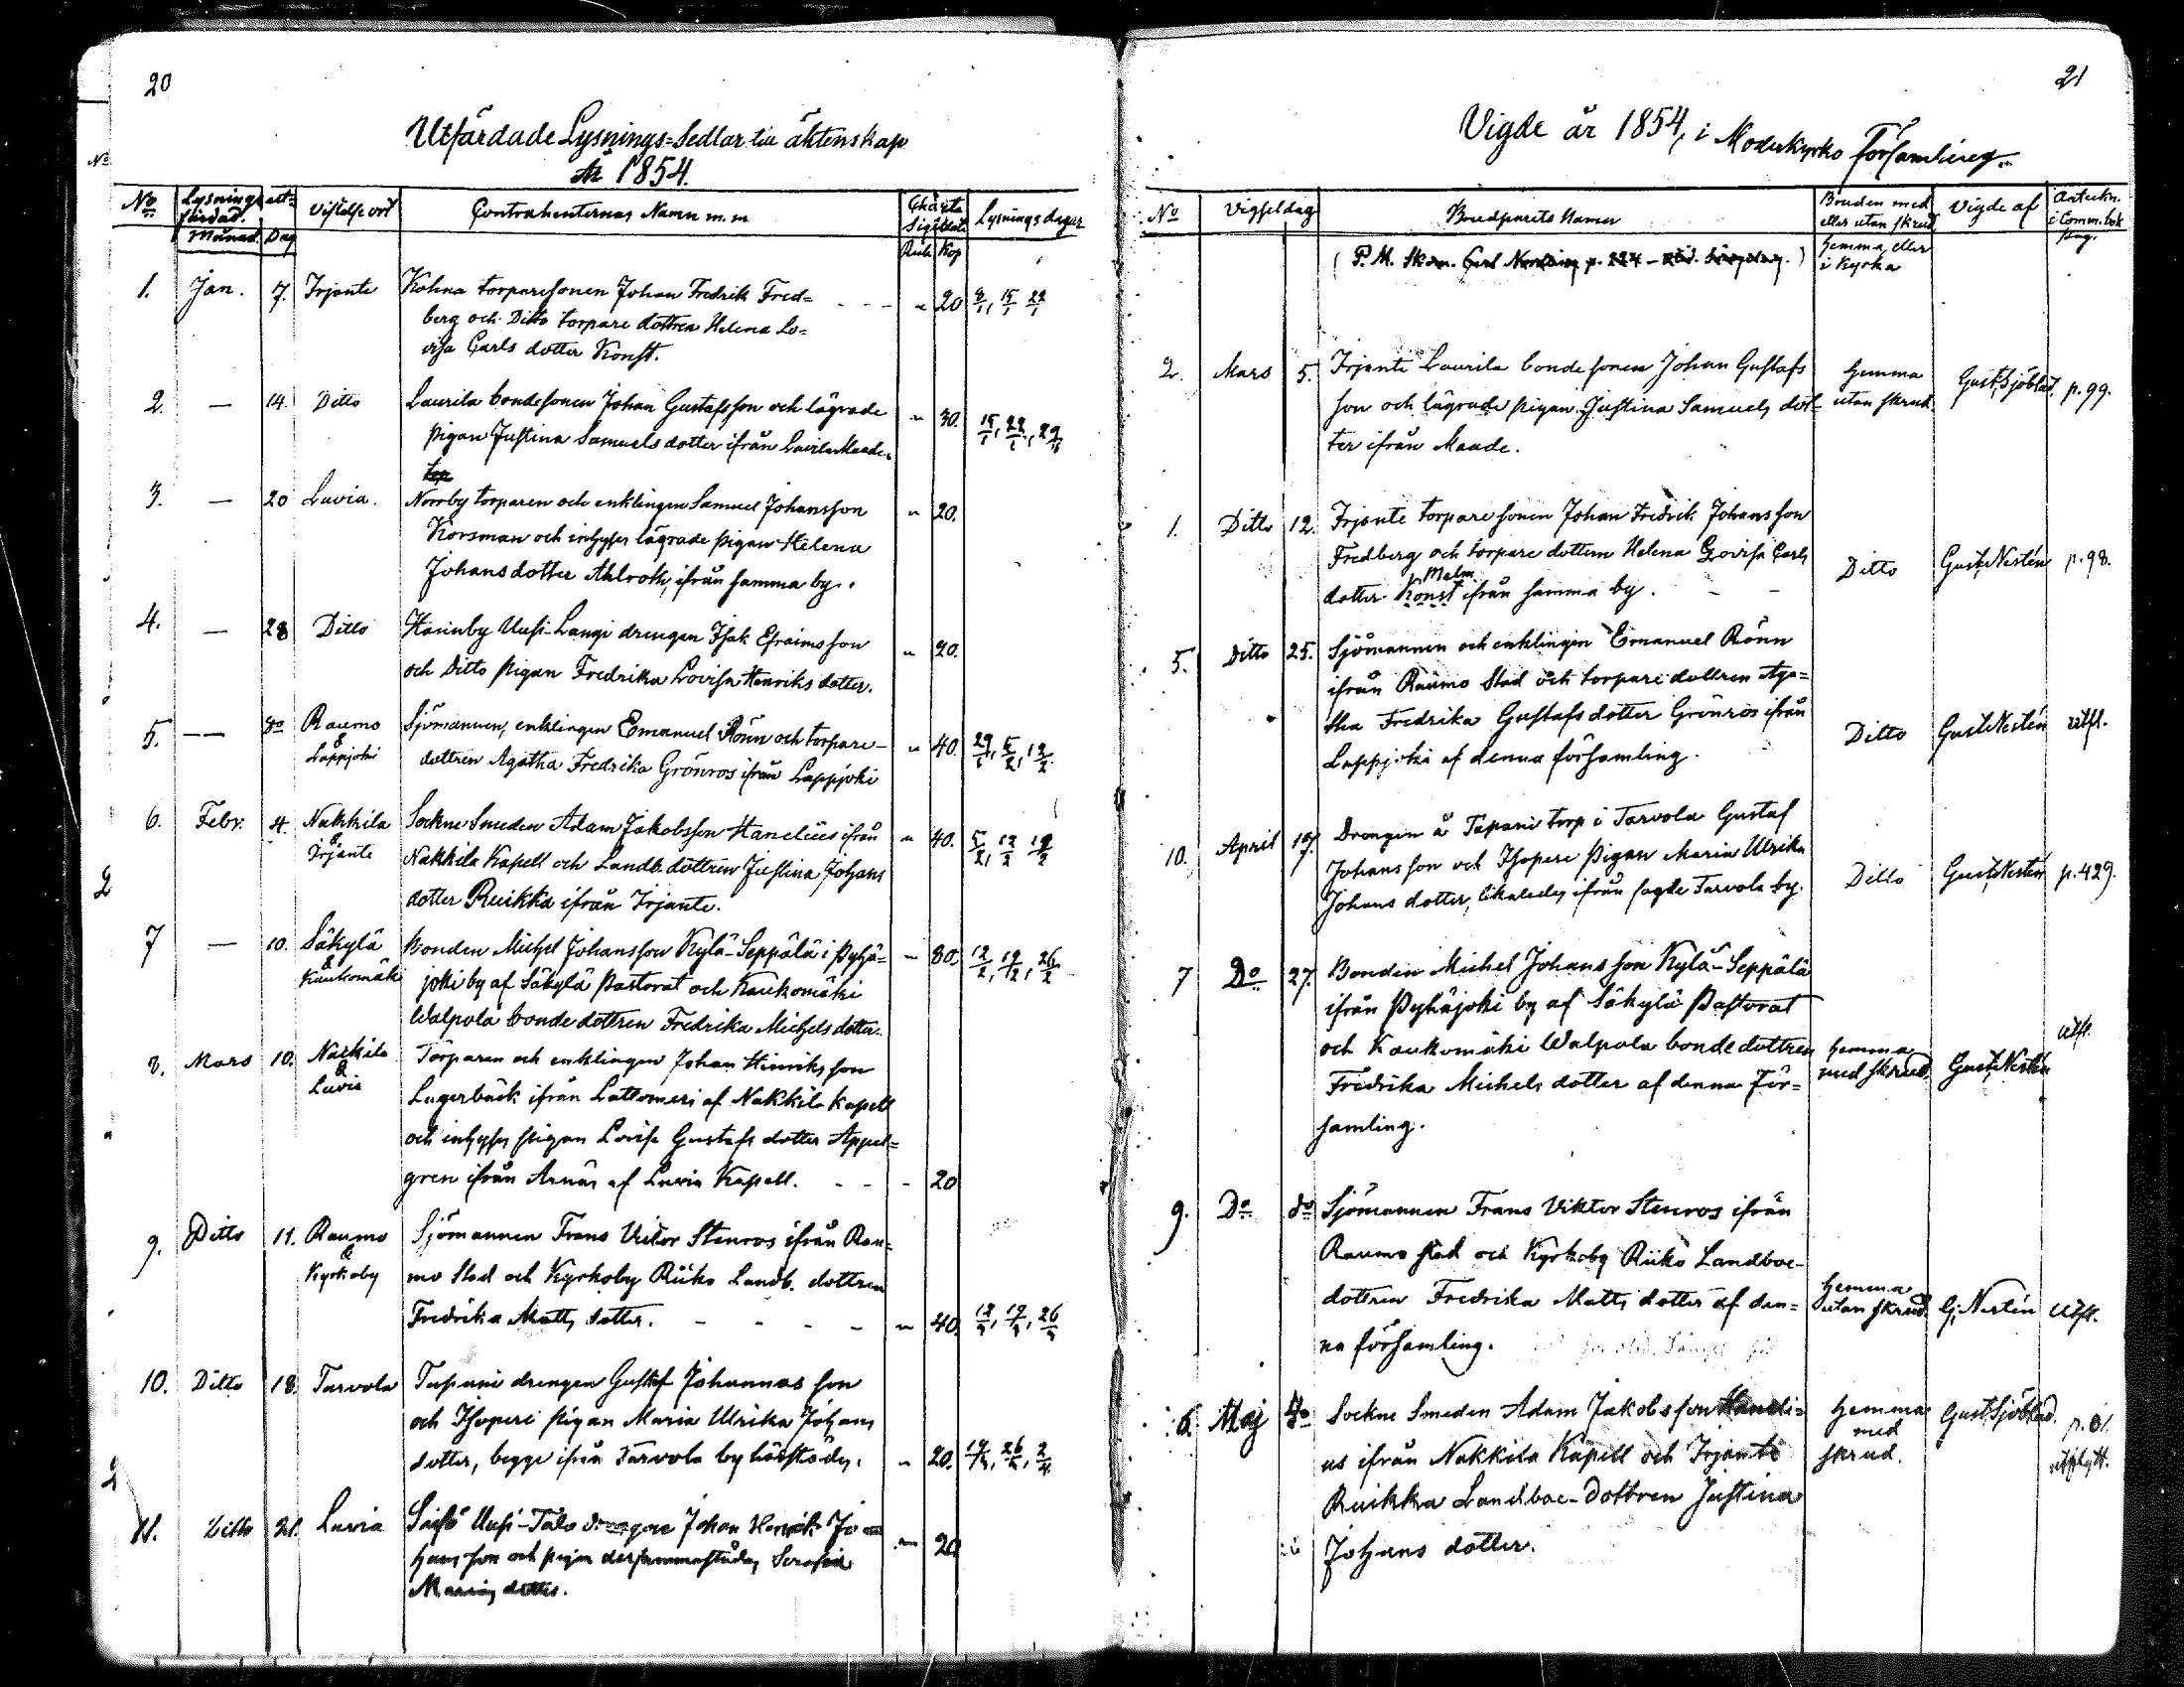 20
Utfärdade Lysnings=Sedlar till äktenskap
År 1854.
No Lysning utfärdad. Månad. Dag Vistelse ort Contrahenternas Namn m.m. Charta Sigillat. Rub. Kop Lysningsdagar
1. Jan. 7. Irjante Kohna torparesonen Johan Fredrik Fred= " 20 8/1, 15/1 22/1
berg och Ditto torpare dottren Helena Lo=
visa Carls dotter Konst.
2. — 14. Ditto Laurila bondesonen Johan Gustafsson och lägrade " 30. 15/1, 22/1, 29/1
pigan Justina Samuels dotter ifrån Maade.
3. — 20 Luvia. Norrby torparen och enklingen Samuel Johansson " 20.
Korsman och inhyses lägrade pigan Helena
Johansdotter Ahlroth, ifrån samma by.
4. — 28 Ditto Hännby Uusi-Langi drengen Isak Efraimsson " 20.
och Ditto pigan Fredrika Lovisa Henriks dotter.
5. — do Raumo & Lappjoki Sjömannen, enklingen Emanuel Rönn och torpare- " 40. 29/1, 5/2, 12/2
dottren Agatha Fredrika Grönros ifrån Lappjoki
6. Febr. 4. Nakkila & Irjante Sockne Smeden Adam Jakobsson Hanelius ifrån " 40. 5/2, 12/2 19/2
Nakkila Kapell och Landb. dottren Justina Johans
dotter Ruikka ifrån Irjante.
7 — 10. Säkylä & Kaukomäki Bonden Michel Johansson Kylä-Seppälä i Pyhä= " 80. 12/2, 19/2, 26/2
joki by af Säkylä Pastorat och Kaukomäki
Walpola bonde dottren Fredrika Michels dotter.
8. Mars 10. Nakkila & Luvia Torparen och enklingen Johan Hinriksson
Lagerbäck ifrån Lattomeri af Nakkila kapell
och inhyses pigan Lovisa Gustafs dotter Appel=
gren ifrån Arnäs af Luvia Kapell. - - - 20
9. Ditto 11. Raumo & Kyrkoby Sjömannen Frans Victor Stenros ifrån Rau=
mo Stad och Kyrkoby Riiko Landb. dottren
Fredrika Matts dotter. - - - - " 40. 12/3, 19/3, 26/3
10. Ditto 18. Tarvola Tapani drengen Gustaf Johannas son
och Isoperi pigan Maria Ulrika Johans
dotter, begge ifrån Tarvola by härstädes. " 20. 19/3, 26/3, 2/4
11. Ditto 21. Luvia Uusi-Talo Johan Henrik Jo=
hansson och pigan dersammastädes Serafia " 20
dotter.
21
Vigde år 1854, i Moderkyrko Församling.
No Vigseldag Brudparets Namn Bruden med eller utan skrud, hemma eller i Kyrka Vigde af Anteckn. i Comm. bok pag.
2. Mars 5. Irjante Laurila bonde sonen Johan Gustafs Hemma utan skrud. Gust. Sjöblad. p. 99.
son och lägrade pigan Justina Samuels dot=
ter ifrån Maade.
1. Ditto 12. Irjante torpare sonen Johan Fredrik Johansson
Fredberg och torpare dottern Helena Lovisa Carls Ditto Gust. Nestén p. 98.
Malm
dotter Konst ifrån samma by.
5. Ditto 25. Sjömannen och enklingen Emanuel Rönn
ifrån Raumo Stad och torpare dottren Aga=
tha Fredrika Gustafs dotter Grönros ifrån Ditto Gust. Nestén utfl.
Lappjoki af denna församling.
10. April 17. Drengen å Tapani torp i Tarvola Gustaf
Johansson och Isoperi pigan Maria Ulrika Ditto Gust. Nestén p. 429.
Johans dotter, likaledes ifrån sagde Tarvola by.
7 Do 27. Bonden Michel Johansson Kylä-Seppälä
ifrån Pyhäjoki by af Säkylä Pastorat
och Kaukomäki Walpola bonde dottren hemma med skrud. Gust. Nestén utfl.
Fredrika Michels dotter af denna för=
samling.
9. Do do Sjömannen Frans Viktor Stenros ifrån
Raumo stad och Kyrkoby Riiko Landboe-
dottren Fredrika Matts dotter af den= hemma utan skrud. G. Nestén utfl.
na församling.
6. Maj Sockne Smeden Adam Jakobsson Haneli= hemma med skrud. Gust. Sjöblad. utflytt.
us ifrån Nakkila Kapell och Irjante
Ruikka Landboe-dottren Justina
Johans dotter.